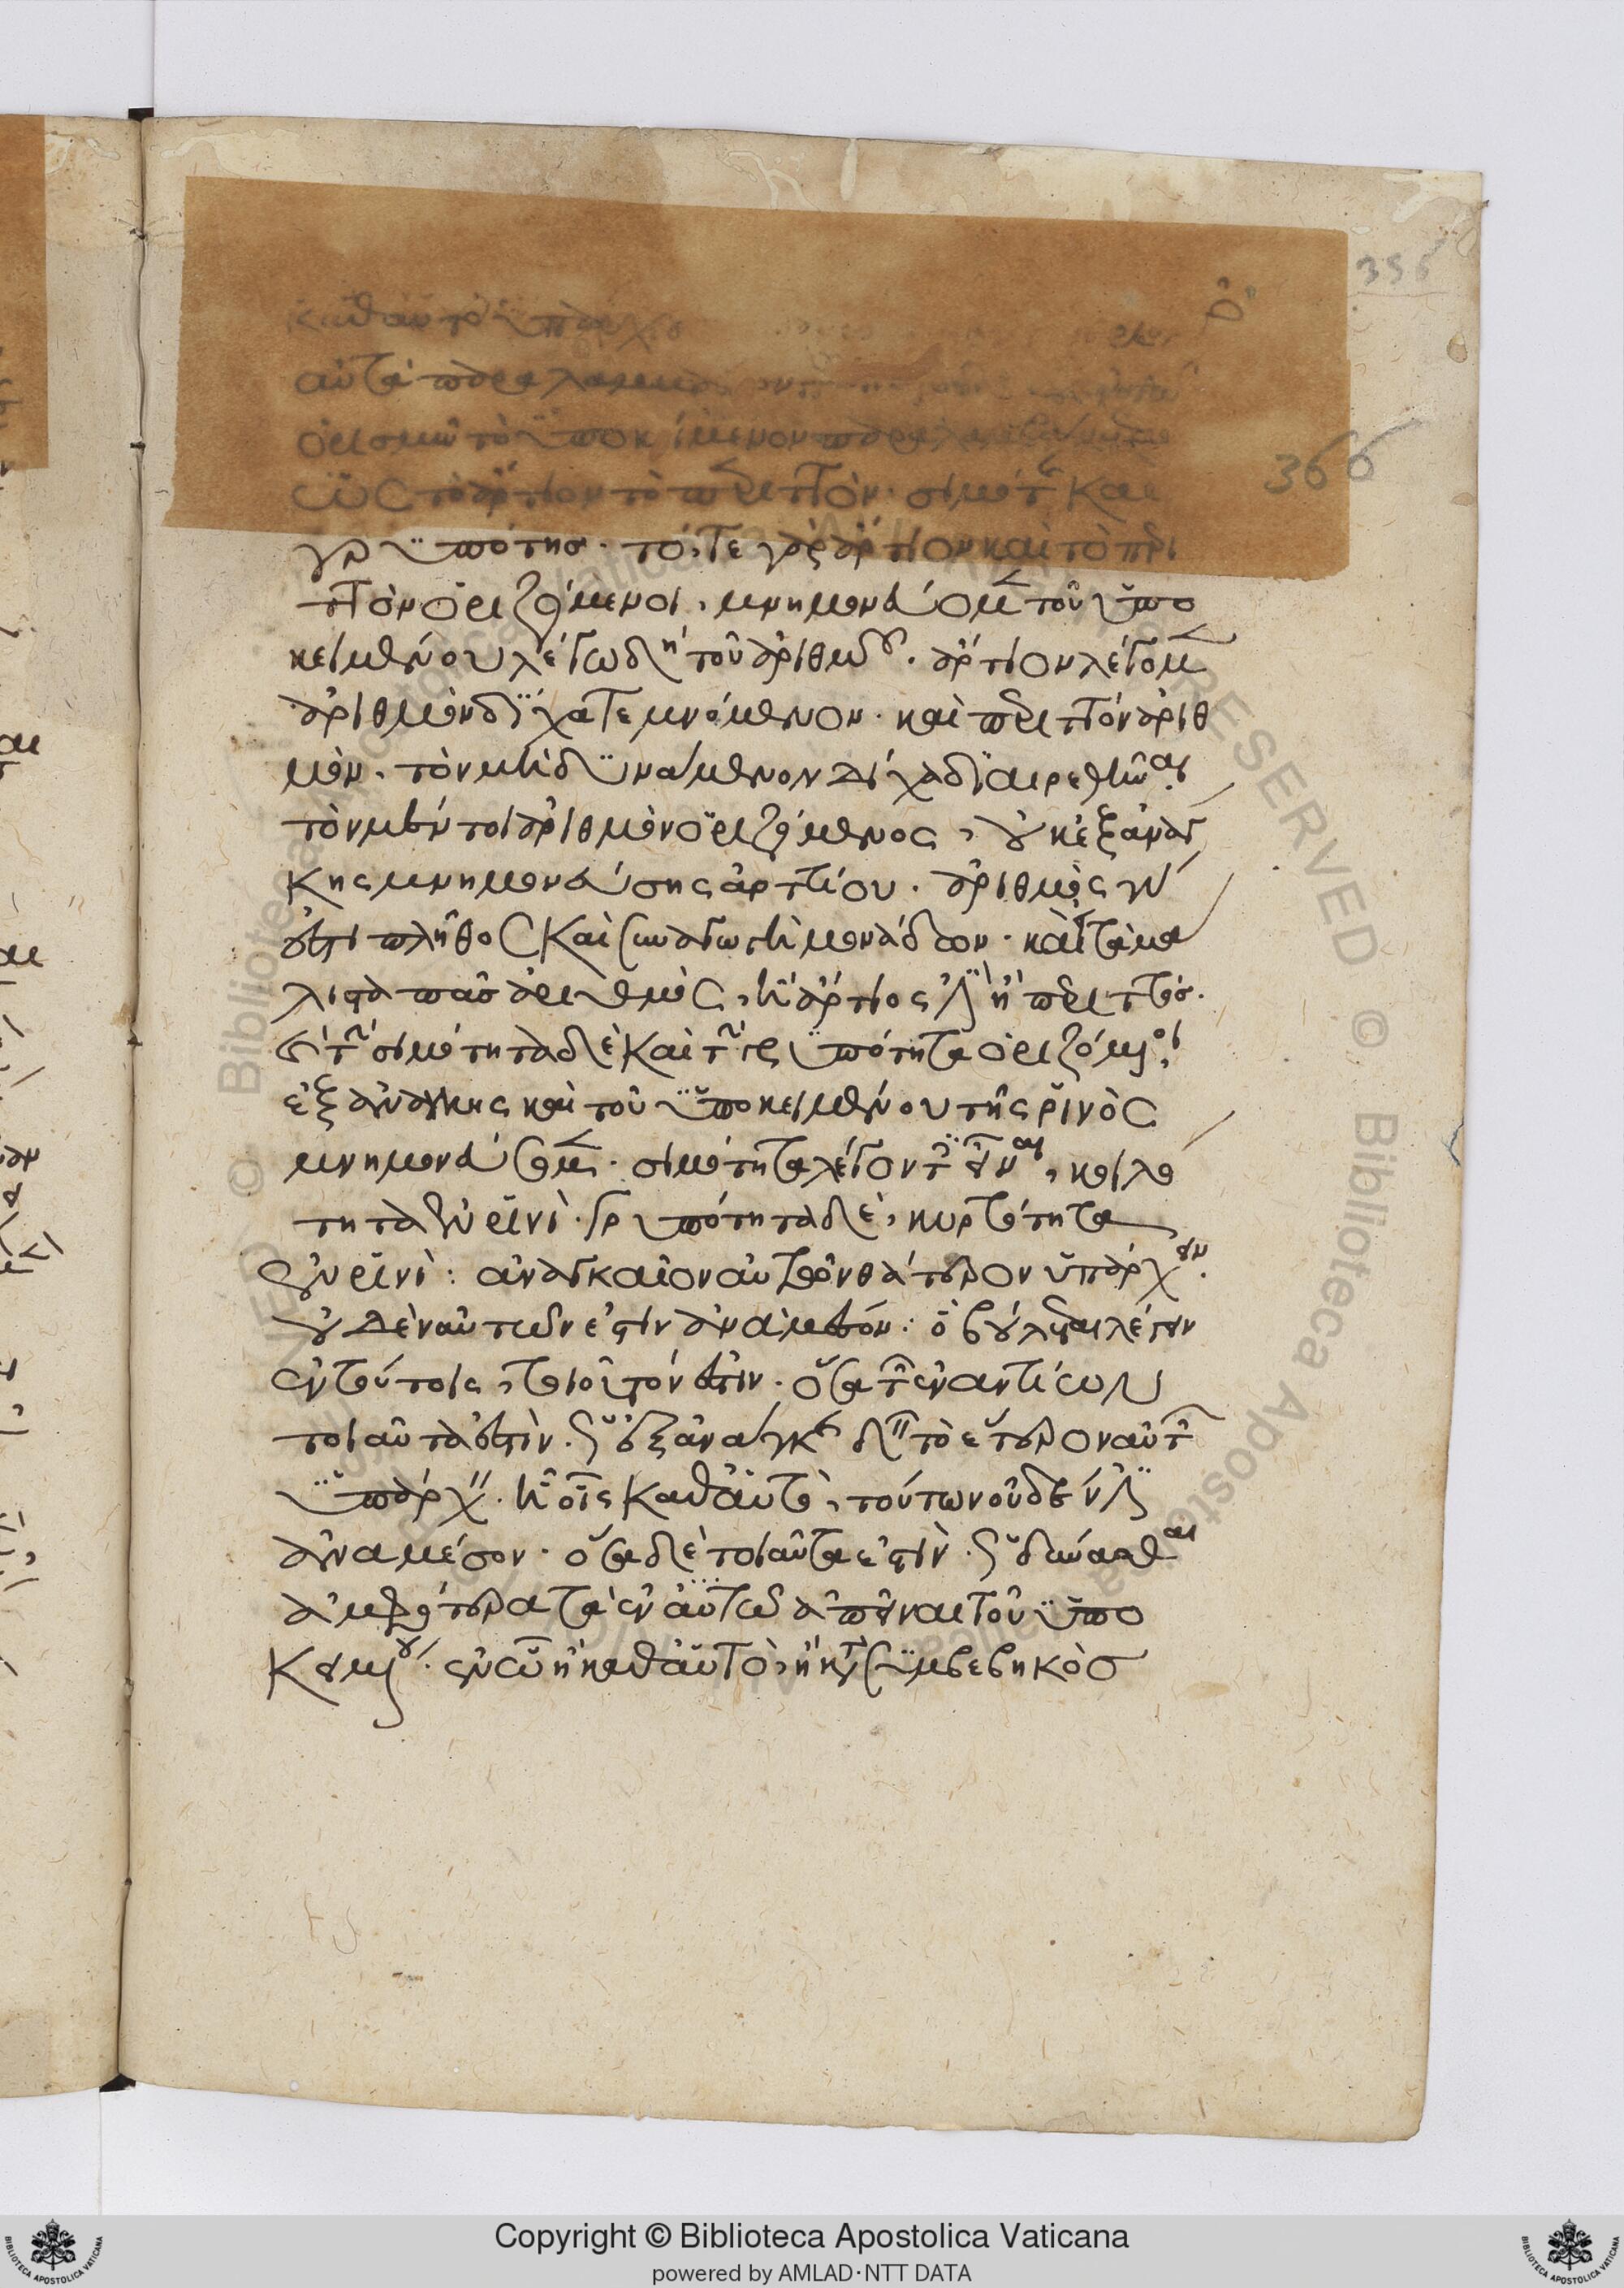 καθαυτὸ ὑπάρχει
αὐτὰ παραλαμβα
ὁρισμῶ τὸ ὑποκείμενον παραλαμβάνηται
ὡς τὸ ἄρτιον τὸ περιττόν· σιμότης καὶ
γρυπότησ· τό, τε γὰρ ἄρτιον καὶ τὸ περι
ττὸν ὁριζόμενοι, μνημονεύομεν τοῦ ὑπο
κειμένου λέγω δὴ τοῦ ἀριθμοῦ. ἄρτιον λέγομεν
ἀριθμὸν δίχα τεμνόμενον· καὶ περιττὸν ἀριθ
μὸν. τὸν μὴ δυνάμενον δίχα διαιρεθῆναι.
τὸν μέντοι ἀριθμὸν ὁριζόμενος, οὐκ ἐξ ἀνάγ
κης μνημονεύσης ἀρτίου. ἀριθμὸς γάρ
ἐστι πλῆθος καὶ συναγωγὴ μονάδων. καίτοι μά
λιστα πᾶσ ἀριθμὸς, ἢ ἄρτιος ἐστὶν ἢ περιττόσ.
τὴν σιμότητα δὲ καὶ τὴν γρυπότητα ὁριζόμενοι,
ἐξ ἀνάγκης καὶ τοῦ ὑποκειμένου τῆς ῥινὸς
μνημονεύομεν. σιμότητα λέγοντες εἶναι, κοιλό
τητα ἐν ῥινὶ. γρυπότητα δὲ, κυρτότητα
ἐν ῥινὶ: ἀναγκαῖον αὐτῶν θάτερον ὑπάρχειν.
οὐδὲν αὐτῶν ἐστὶν ἀνὰ μέσον: ὃ βούλεται λέγειν
ἐν τούτοις, τοιοῦτόν ἐστιν. ὅσα τῶν ἐναντίων
τοιαῦτα ἐστὶν. ὡς ἐξ ἀνάγκης δεῖ τὸ ἕτερον αὐτῶν
ὑπάρχειν. ἢ οἷς καθαὑτὸ, τούτων οὐδέν ἐστιν
ἀνα μέσον. ὅσα δὲ τοιαῦτα ἐστὶν. ὡς δύνασθαι
ἀμφότερα τὰ ἐν αὐτῶ ἀπεῖναι τοῦ ὑπο
κειμένου. ἐν ὧ ἢ καθαὑτὸ, ἢ κατὰ συμβεβηκὸσ
366
Copyright © Biblioteca Apostolica Vaticana
powered by AMLAD·NTT DATA